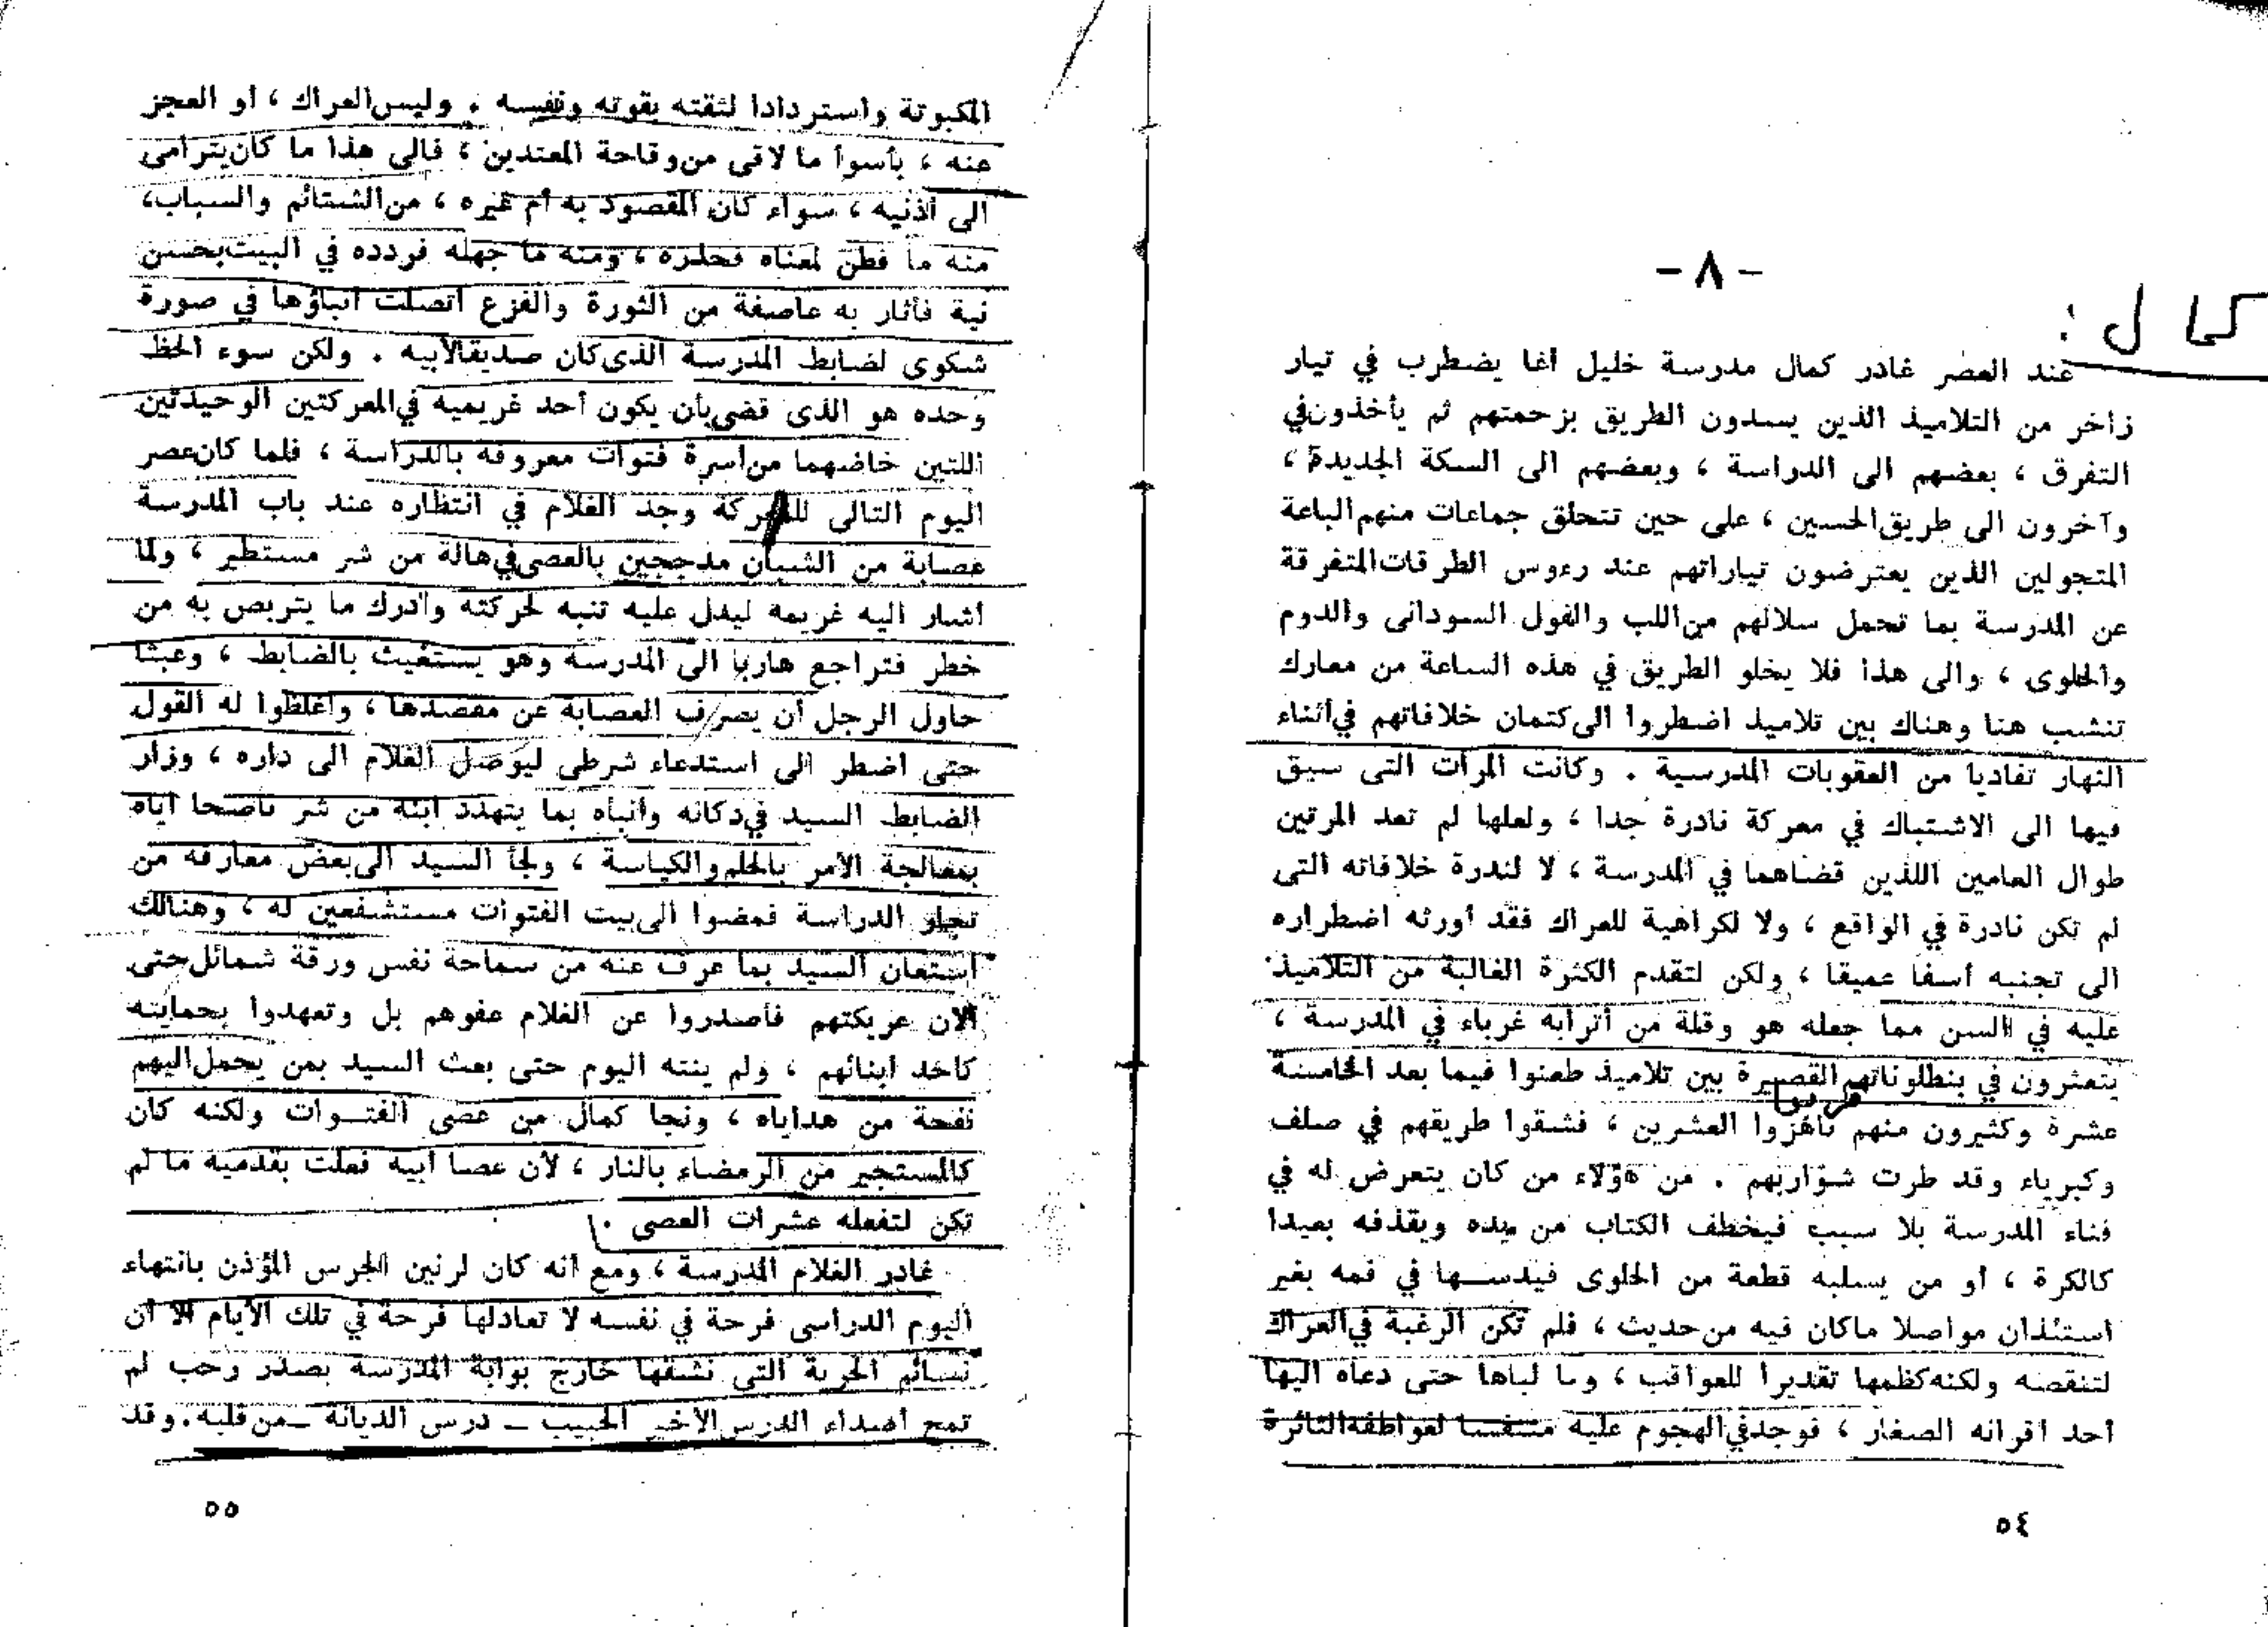 - ٨ -
كمال :
عند العصر غادر كمال مدرسة خليل أغا يضطرب في تيار
زاخر من التلاميذ الذين يسدون الطريق بزحمتهم ثم يأخذون في
التفرق ، بعضهم الى الدراسة ، وبعضهم الى السكة الجديدة ،
وآخرون الى طريق الحسين ، على حين تتحلق جماعات منهم الباعة
المتجولين الذين يعترضون تياراتهم عند رءوس الطرقات المتفرقة
عن المدرسة بما تحمل سلالهم من اللب والفول السودانى والدوم
والحلوى ، والى هذا فلا يخلو الطريق في هذه الساعة من معارك
تنشب هنا وهناك بين تلاميذ اضطروا الى كتمان خلافاتهم في أثناء
النهار تفاديا من العقوبات المدرسية . وكانت المرات التى سبق
فيها الى الاشتباك في معركة نادرة جدا ، ولعلها لم تعد المرتين
طوال العامين اللذين قضاهما في المدرسة ، لا لندرة خلافاته التى
لم تكن نادرة في الواقع ، ولا لكراهية للعراك فقد أورثه اضطراره
الى تجنبه أسفا عميقا ، ولكن لتقدم الكثرة الغالبة من التلاميذ
عليه في السن مما جعله هو وقلة من أترابه غرباء في المدرسة ،
يتعثرون في بنطلوناتهم القصيرة بين تلاميذ طعنوا فيما بعد الخامسة
عشرة وكثيرون منهم ناهزوا العشرين ، فشقوا طريقهم في صلف
وكبرياء وقد طرت شواربهم . من هؤلاء من كان يتعرض له في
فناء المدرسة بلا سبب فيخطف الكتاب من يده ويقذفه بعيدا
كالكرة ، أو من يسلبه قطعة من الحلوى فيدسها في فمه بغير
استئذان مواصلا ما كان فيه من حديث ، فلم تكن الرغبة في العراك
لتنقصه ولكنه كظمها تقديرا للعواقب ، وما لباها حتى دعاه اليها
أحد أقرانه الصغار ، فوجد في الهجوم عليه متنفسا لعواطفه الثائرة
٥٤
المكبوتة واستردادا لثقته بقوته ونفسه . وليس العراك ، أو العجز
عنه ، بأسوأ ما لاقى من وقاحة المعتدين ، فالى هذا ما كان يترامى
الى أذنيه ، سواء كان المقصود به أم غيره ، من الشتائم والسباب ،
منه ما فطن لمعناه فحذره ، ومنه ما جهله فردده في البيت بحسن
نية فأثار به عاصفة من الثورة والفزع اتصلت أنباؤها في صورة
شكوى لضابط المدرسة الذى كان صديقا لأبيه . ولكن سوء الحظ
وحده هو الذى قضى بأن يكون أحد غريميه في المعركتين الوحيدتين
اللتين خاضهما من أسرة فتوات معروفة بالدراسة ، فلما كان عصر
اليوم التالى للمعركة وجد الغلام في انتظاره عند باب المدرسة
عصابة من الشبان مدججين بالعصى في هالة من شر مستطير ، ولما
أشار اليه غريمه ليدل عليه تنبه لحركته وأدرك ما يتربص به من
خطر فتراجع هاربا الى المدرسة وهو يستغيث بالضابط ، وعبثا
حاول الرجل أن يصرف العصابة عن مقصدها ، وأغلظوا له القول
حتى اضطر الى استدعاء شرطى ليوصل الغلام الى داره ، وزار
الضابط السيد في دكانه وأنباه بما يتهدد ابنه من شر ناصحا اياه
بمعالجة الأمر بالحلم والكياسة ، ولجأ السيد الى بعض معارفه من
تجار الدراسة فمضوا الى بيت الفتوات مستشفعين له ، وهنالك
استعان السيد بما عرف عنه من سماحة نفس ورقة شمائل حتى
ألان عريكتهم فأصدروا عن الغلام عفوهم بل وتعهدوا بحمايته
كأحد أبنائهم ، ولم ينته اليوم حتى بعث السيد بمن يحمل اليهم
نفحة من هداياه ، ونجا كمال من عصى الفتـوات ولكنه كان
كالمستجير من الرمضاء بالنار ، لأن عصا أبيه فعلت بقدميه ما لم
تكن لتفعله عشرات العصى .
غادر الغلام المدرسة ، ومع أنه كان لرنين الجرس المؤذن بانتهاء
اليوم الدراسى فرحة في نفسه لا تعادلها فرحة في تلك الأيام الا أن
نسائم الحرية التى نشقها خارج بوابة المدرسة بصدر رحب لم
تمح أصداء الدرس الأخير الحبيب ـ درس الديانة ـ من قلبه . وقد
٥٥